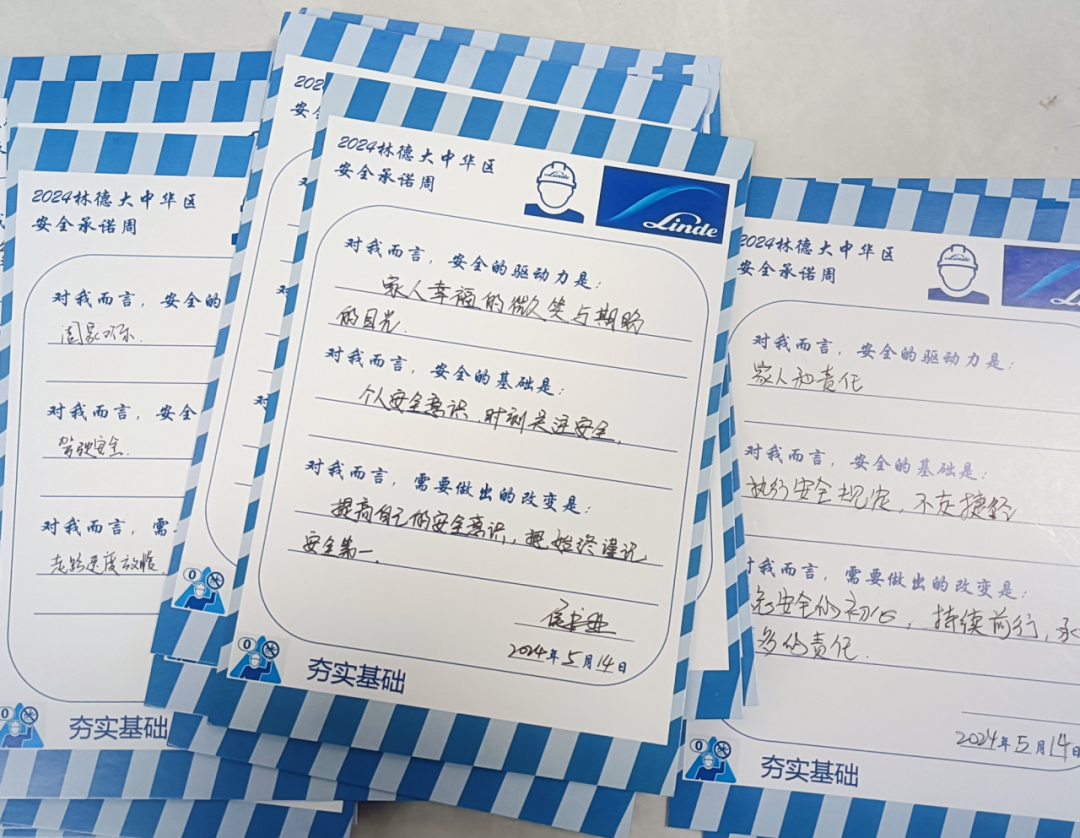 2024林德大中华区
安全承诺周
Linde
Linde
对我而言，安全的驱动力是：
家人幸福的微笑与期盼
的目光.
对我而言，安全的基础是：
个人安全意识，时刻关注安全.
对我而言，需要做出的改变是：
提高自己的安全意识，把始终谨记
安全第一.
2024年5月14日
夯实基础
2024林德大中华区
安全承诺周
对我而言，安全的
对我而言，安全
驾驶安全.
对我而言，需
走路速度放慢
夯实基础
202
安全
对
对
对
2024林德大中华区
安全承诺周
Linde
对我而言，安全的驱动力是：
家人和责任
对我而言，安全的基础是：
执行安全规定，不走捷径
对我而言，需要做出的改变是：
安全的初心，持续前行，承
多的责任.
2024年5月14日
夯实基础